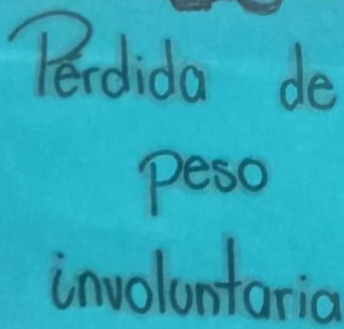 Pérdida de
peso
involuntaria